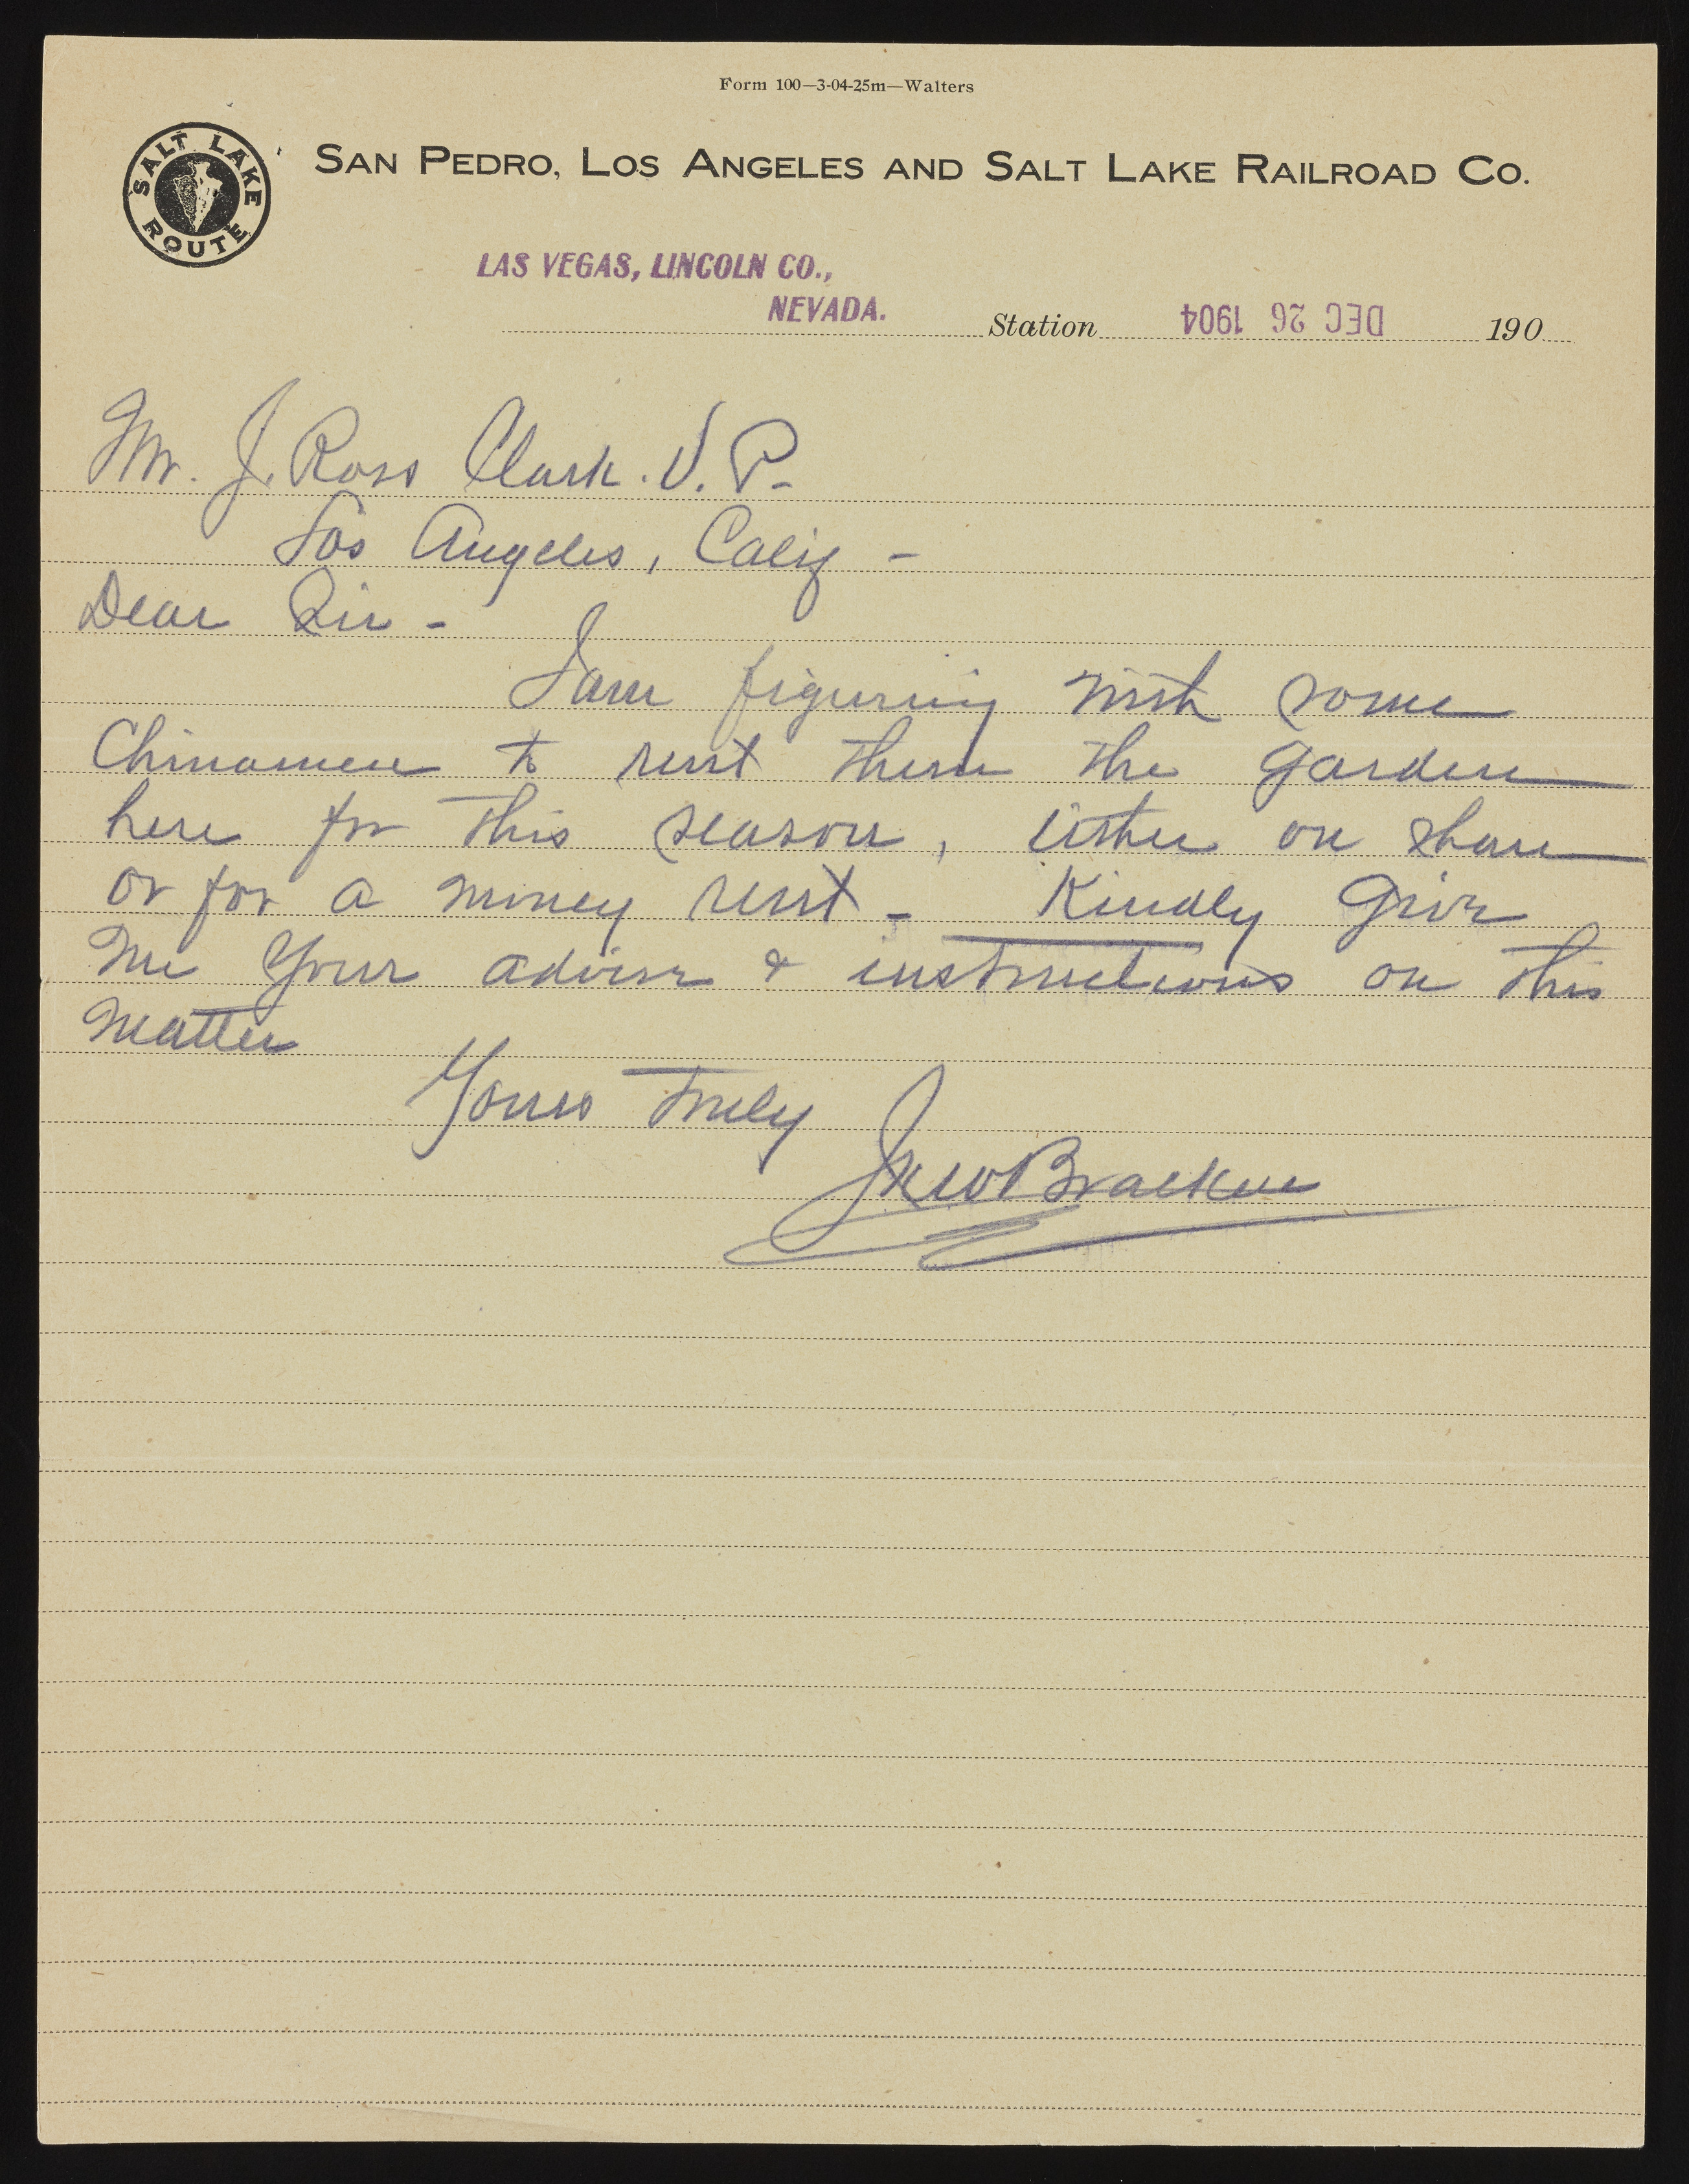 Form 100—3-04-25m—Walters
SALT LAKE ROUTE
SAN PEDRO, LOS ANGELES AND SALT LAKE RAILROAD CO.
LAS VEGAS, LINCOLN CO.,
NEVADA.
Station DEC 26 1904 190
Mr. J. Ross Clark. V. P.
Los Angeles, Calif -
Dear Sir -
I am figuring with some
Chinamen to rent them the garden
here for this season, either on share
or for a money rent - Kindly give
me your advise & instructions on this
matter
Yours Truly
Jno W Bracken